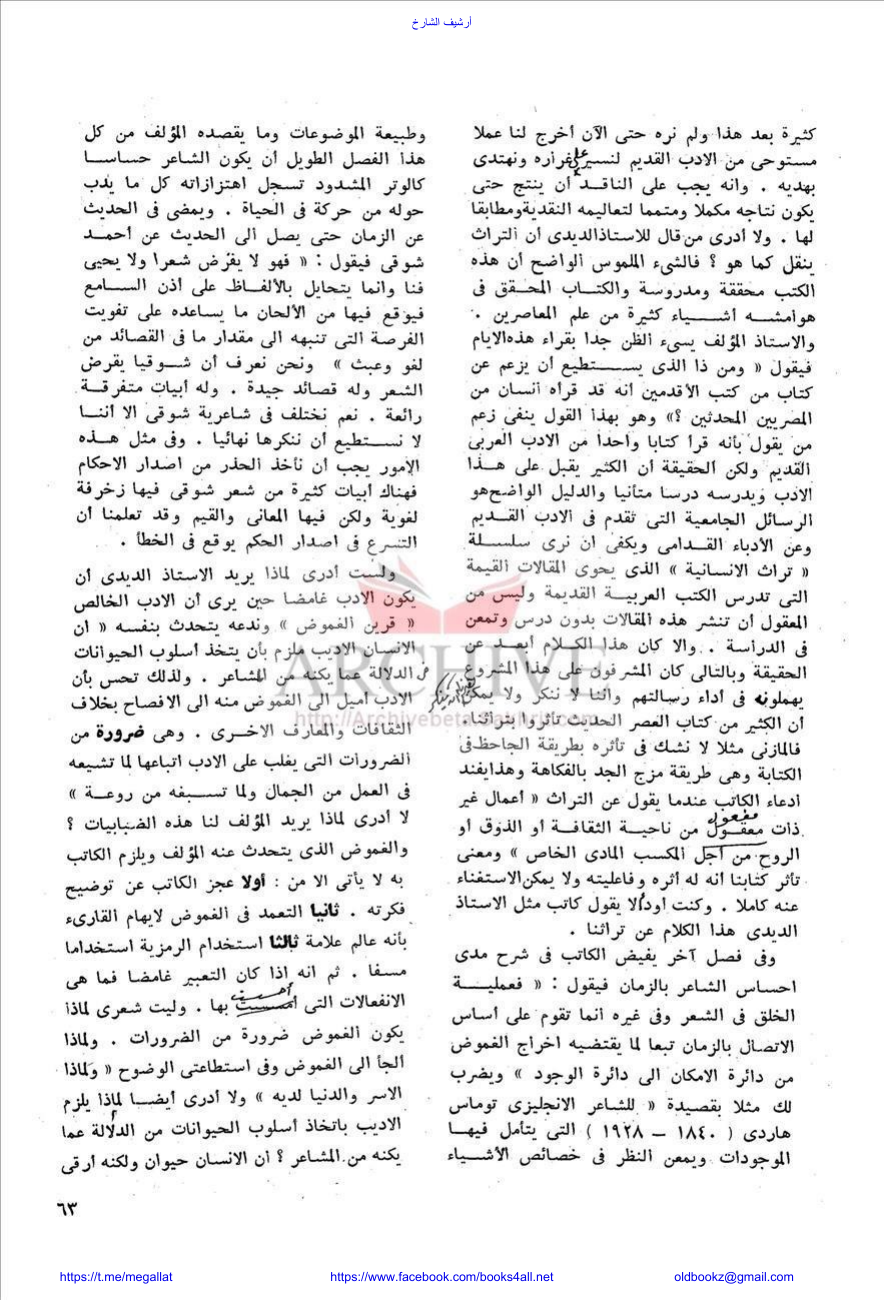 أرشيف الشارخ
كثيرة بعد هذا ولم نره حتى الآن أخرج لنا عملا
مستوحى من الادب القديم لنسير على غراره ونهتدى
بهديه . وانه يجب على الناقد أن ينتج حتى
يكون نتاجه مكملا ومتمما لتعاليمه النقدية ومطابقا
لها . ولا أدرى من قال للاستاذ الديدى أن التراث
ينقل كما هو ؟ فالشىء الملموس الواضح أن هذه
الكتب محققة ومدروسة والكتاب المحقق فى
هوامشه أشياء كثيرة من علم المعاصرين .
والاستاذ المؤلف يسىء الظن جدا بقراء هذه الايام
فيقول « ومن ذا الذى يستطيع أن يزعم عن
كتاب من كتب الأقدمين أنه قد قرأه انسان من
المصريين المحدثين ؟» وهو بهذا القول ينفى زعم
من يقول بأنه قرأ كتابا واحدا من الادب العربى
القديم ولكن الحقيقة أن الكثير يقبل على هذا
الادب ويدرسه درسا متأنيا والدليل الواضح هو
الرسائل الجامعية التى تقدم فى الادب القديم
وعن الأدباء القدامى ويكفى أن نرى سلسلة
« تراث الانسانية » الذى يحوى المقالات القيمة
التى تدرس الكتب العربية القديمة وليس من
المعقول أن تنشر هذه المقالات بدون درس وتمعن
فى الدراسة . والا كان هذا الكلام أبعد عن
الحقيقة وبالتالى كان المشرفون على هذا المشروع
يهملونه فى اداء رسالتهم واننا لا ننكر ولا يمكن
أن الكثير من كتاب العصر الحديث تأثروا بتراثنا.
فالمازنى مثلا لا نشك فى تأثره بطريقة الجاحظ فى
الكتابة وهى طريقة مزج الجد بالفكاهة وهذا يفند
ادعاء الكاتب عندما يقول عن التراث « أعمال غير
ذات معقول مفعول من ناحية الثقافة أو الذوق أو
الروح من أجل المكسب المادى الخاص » ومعنى
تأثر كتابنا انه له أثره وفاعليته ولا يمكن الاستغناء
عنه كاملا . وكنت أود ألا يقول كاتب مثل الاستاذ
الديدى هذا الكلام عن تراثنا .
وفى فصل آخر يفيض الكاتب فى شرح مدى
احساس الشاعر بالزمان فيقول : « فعملية
الخلق فى الشعر وفى غيره انما تقوم على أساس
الاتصال بالزمان تبعا لما يقتضيه اخراج الغموض
من دائرة الامكان الى دائرة الوجود » ويضرب
لك مثلا بقصيدة « للشاعر الانجليزى توماس
هاردى ( ١٨٤٠ – ١٩٢٨ ) التى يتأمل فيها
الموجودات ويمعن النظر فى خصائص الأشياء
وطبيعة الموضوعات وما يقصده المؤلف من كل
هذا الفصل الطويل أن يكون الشاعر حساسا
كالوتر المشدود تسجل اهتزازاته كل ما يدب
حوله من حركة فى الحياة . ويمضى فى الحديث
عن الزمان حتى يصل الى الحديث عن أحمد
شوقى فيقول : « فهو لا يقرض شعرا ولا يحيى
فنا وانما يتحايل بالألفاظ على أذن السامع
فيوقع فيها من الألحان ما يساعده على تفويت
الفرصة التى تنبهه الى مقدار ما فى القصائد من
لغو وعبث » ونحن نعرف أن شوقيا يقرض
الشعر وله قصائد جيدة . وله أبيات متفرقة
رائعة . نعم نختلف فى شاعرية شوقى الا أننا
لا نستطيع أن ننكرها نهائيا . وفى مثل هذه
الأمور يجب أن نأخذ الحذر من اصدار الاحكام
فهناك أبيات كثيرة من شعر شوقى فيها زخرفة
لغوية ولكن فيها المعانى والقيم وقد تعلمنا أن
التسرع فى اصدار الحكم يوقع فى الخطأ .
ولست أدرى لماذا يريد الاستاذ الديدى أن
يكون الادب غامضا حين يرى أن الادب الخالص
« قرين الغموض » وندعه يتحدث بنفسه « ان
الانسان الاديب ملزم بأن يتخذ أسلوب الحيوانات
فى الدلالة عما يكنه من المشاعر . ولذلك تحس بأن
الادب أميل الى الغموض منه الى الافصاح بخلاف
الثقافات والمعارف الاخرى . وهى ضرورة من
الضرورات التى يغلب على الادب اتباعها لما تشيعه
فى العمل من الجمال ولما تسبغه من روعة »
لا أدرى لماذا يريد المؤلف لنا هذه الضبابيات ؟
والغموض الذى يتحدث عنه المؤلف ويلزم الكاتب
به لا يأتى الا من : أولا عجز الكاتب عن توضيح
فكرته . ثانيا التعمد فى الغموض لايهام القارىء
بأنه عالم علامة ثالثا استخدام الرمزية استخداما
مسفا . ثم انه اذا كان التعبير غامضا فما هى
الانفعالات التى بها . وليت شعرى لماذا
يكون الغموض ضرورة من الضرورات . ولماذا
ألجأ الى الغموض وفى استطاعتى الوضوح « ولماذا
الاسر والدنيا لديه » ولا أدرى أيضا لماذا يلزم
الاديب باتخاذ أسلوب الحيوانات من الدلالة عما
يكنه من المشاعر ؟ أن الانسان حيوان ولكنه أرقى
٦٣
ARCHIVE
http://Archivebeta.Sakhrit.com
https://t.me/megallat
https://www.facebook.com/books4all.net
oldbookz@gmail.com